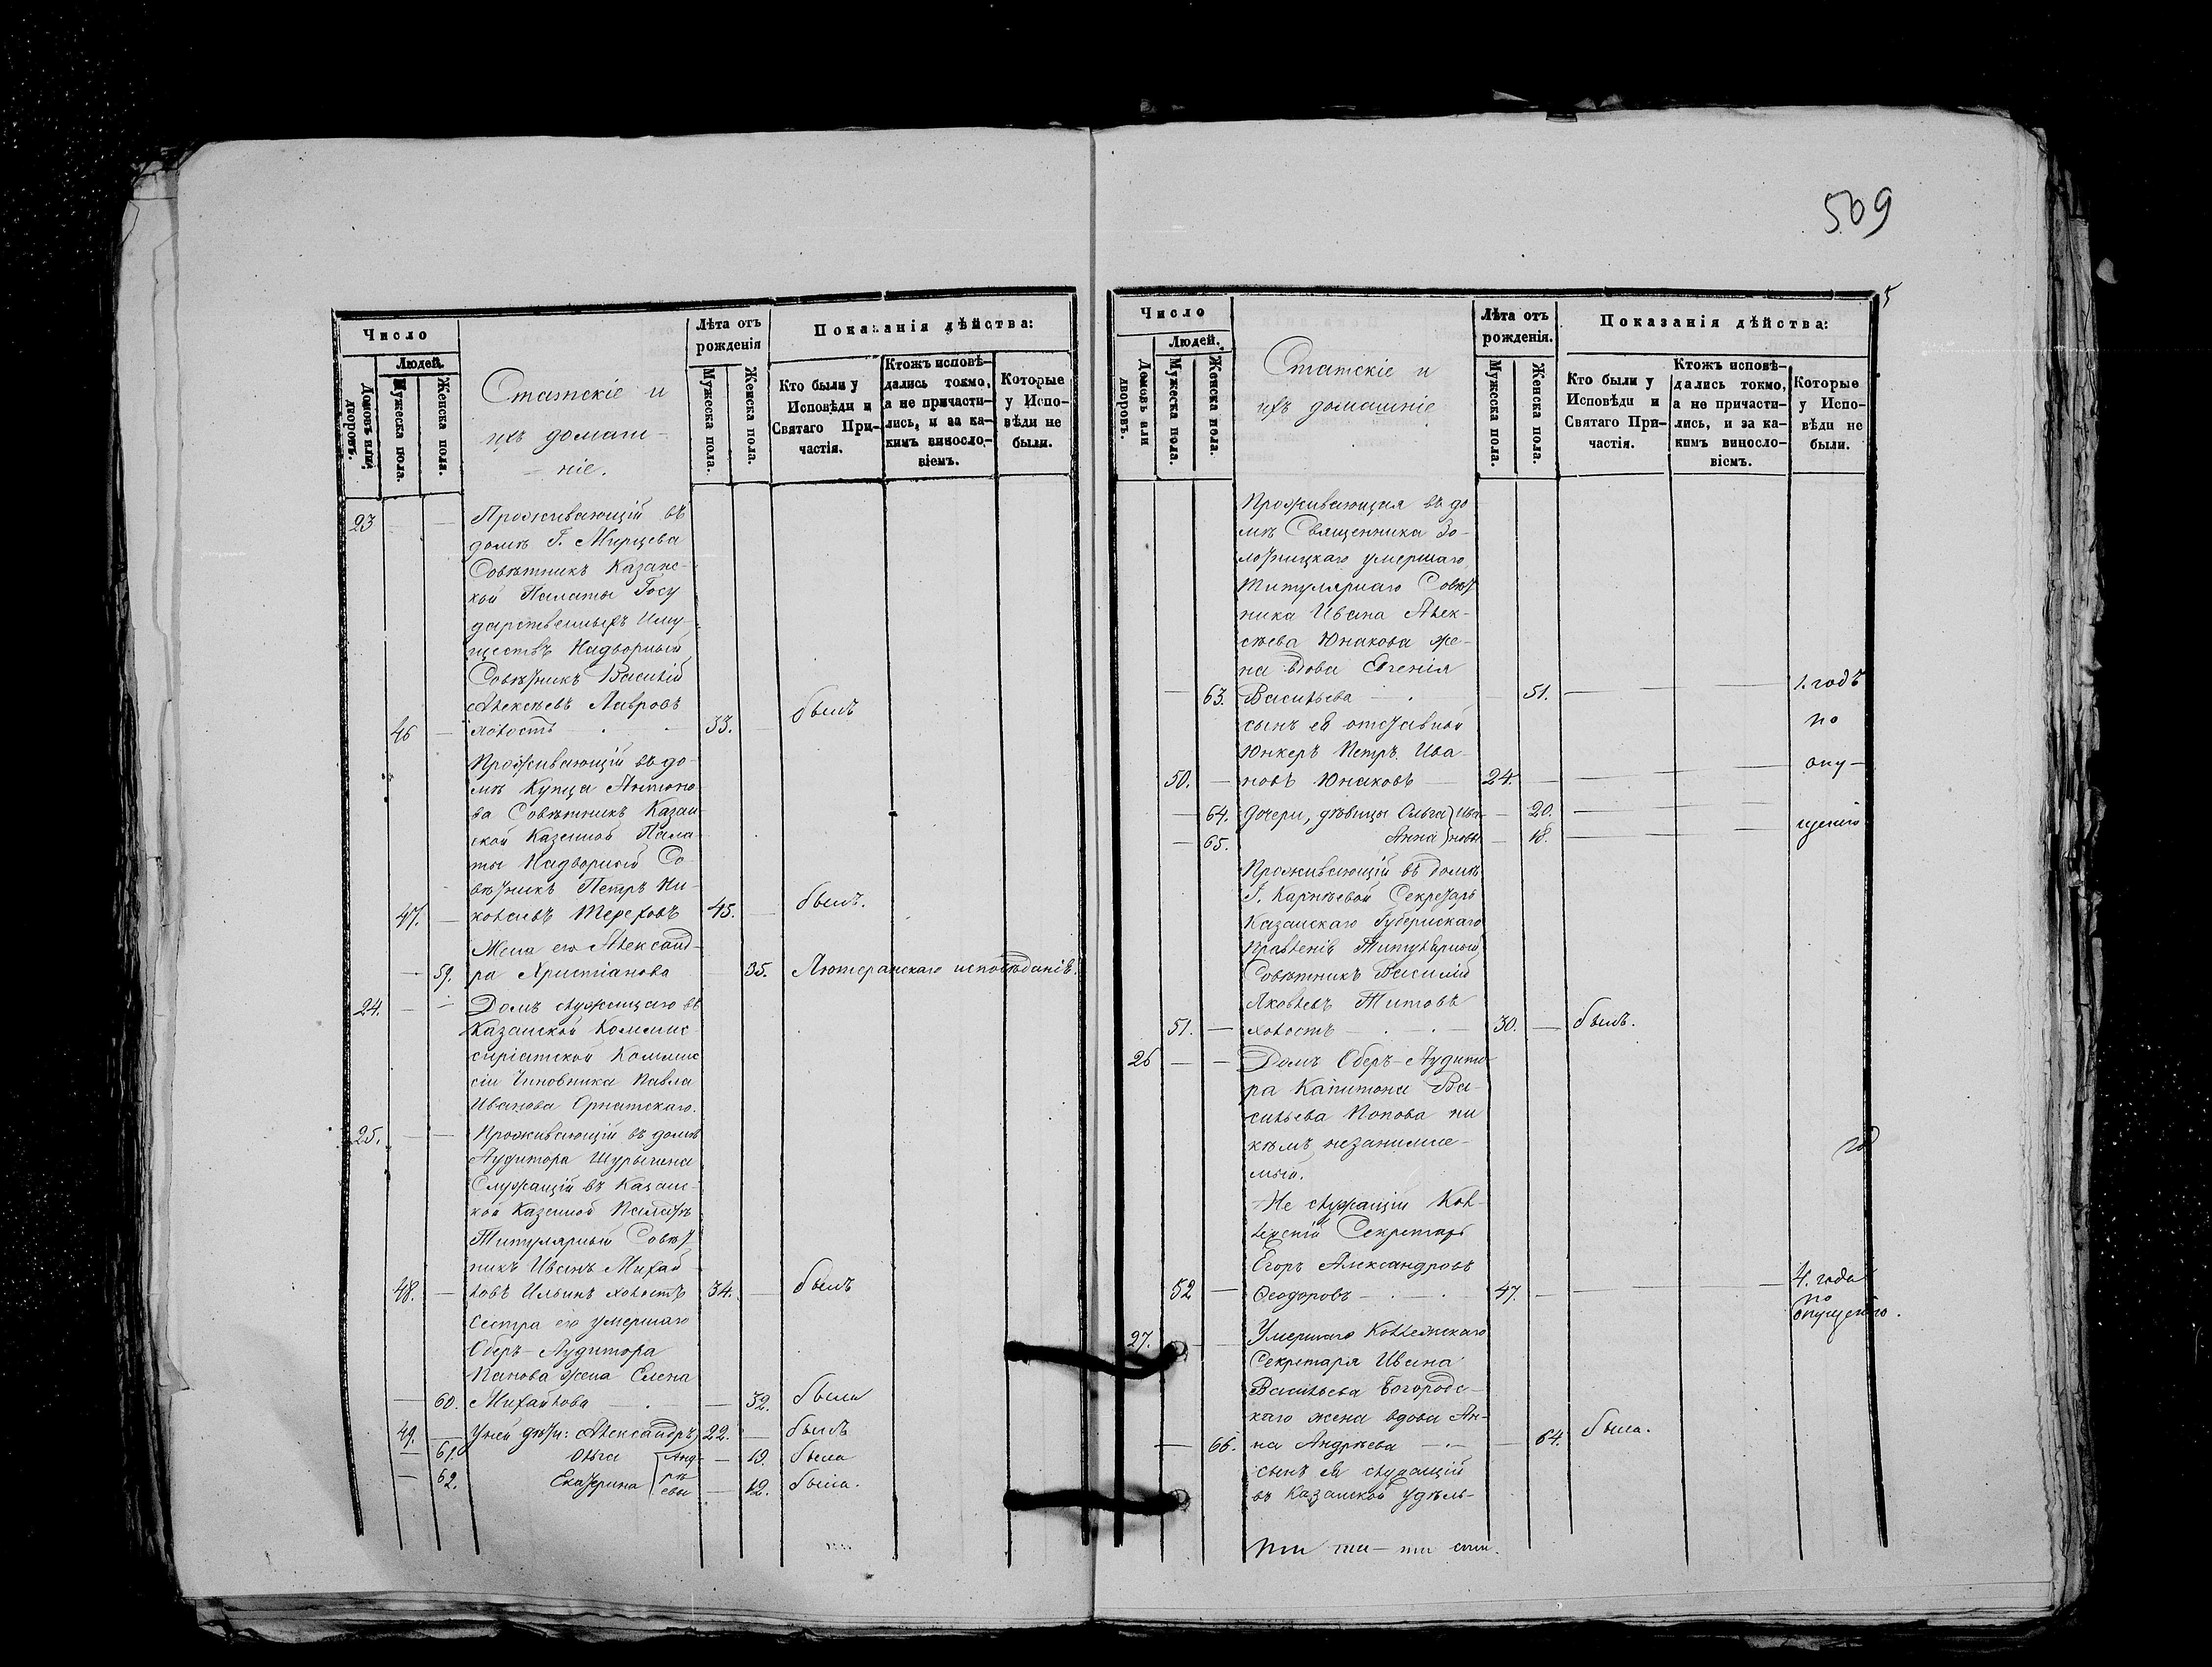 509
5
Число
Людей.
Домовъ или дворовъ.
Мужеска пола.
Женска пола.
Статскіе и
ихъ домаш-
ніе.
Лѣта отъ
рожденія
Мужеска пола.
Женска пола.
Показанія дѣйства:
Кто были у
Исповѣди и
Святаго При-
частія.
Ктожъ исповѣ-
дались токмо,
а не причасти-
лись, и за ка-
кимъ виносло-
віемъ.
Которые
у Испо-
вѣди не
были.
23 — — Проживающій въ
домѣ Г. Мирцева
Совѣтникъ Казанс-
кой Палаты Госу
дарственныхъ Иму-
ществъ Надворный
Совѣтникъ Василій
Алексѣевъ Лавровъ
46 — холостъ — 33. — былъ
Проживающій въ до-
мѣ Купца Антоно
ва Совѣтникъ Казан
ской Казенной Пала-
ты Надворный Со-
вѣтникъ Петръ Ни-
47. — колаевъ Тереховъ 45. — былъ.
Жена его Александ-
— 59. ра Христіанова 35. Лютеранскаго исповѣданія.
24. — — Домъ служащаго въ
Казанской Коммис
саріатской Коммис
сіи Чиновника Павла
Иванова Орнатскаго.
25. — — Проживающій въ домѣ
Аудитора Шурыгина
Служащій въ Казанс-
кой Казенной Палатѣ
Титулярный Совѣт
никъ Иванъ Михай
48. — ловъ Ильинъ холостъ 34. — былъ
Сестра его умершаго
Оберъ-Аудитора
Панова жена Елена
— 60. Михайлова — — 32. была
49. — У ней дѣти: Александръ 22. — былъ
— 61. Ольга Анд- — 19. была
— 62. Екатерина рѣ евы — 12. была.
Число
Людей.
Домовъ или дворовъ.
Мужеска пола.
Женска пола.
Статскіе и
ихъ домашніе
Лѣта отъ
рожденія.
Мужеска пола.
Женска пола.
Показанія дѣйства:
Кто были у
Исповѣди и
Святаго При-
частія.
Ктожъ исповѣ-
дались токмо,
а не причасти-
лись, и за ка-
кимъ виносло-
віемъ.
Которые
у Испо-
вѣди не
были.
Проживающая въ до
мѣ Священника Зо-
лотницкаго умершаго
Титулярнаго Совѣт
ника Ивана Алек-
сѣева Юнакова же-
на вдова Евгенія
— 63. Васильева — — 51. — — 1. годъ
сынъ ея отставной по
Юнкеръ Петръ Ива-
50. — новъ Юнаковъ — 24. — — — опу-
— 64. Дочери, дѣвицы Ольга Ива- — 20. — —
— 65. Анна новы — 18. — — щенію
Проживающій въ домѣ
Г. Карпѣевой Секретарь
Казанскаго Губернскаго
Правленія Титулярный
Совѣтникъ Василій
Яковлевъ Титовъ
51. — холостъ — 30. — былъ.
26 — — Домъ Оберъ-Аудито
ра Капитона Ва-
сильева Попова ни
кѣмъ незанимае-
мый.
Не служащій Кол-
лежскій Секретарь
Егоръ Александровъ
52 — Ѳеодоровъ — 47. — — — 4. года
по
опущенію.
27. — — Умершаго Коллежскаго
Секретаря Ивана
Васильева Богородс-
каго жена вдова Ан-
— 66. на Андрѣева — — 64. была.
сынъ ея служащій
въ Казанской Удѣль-